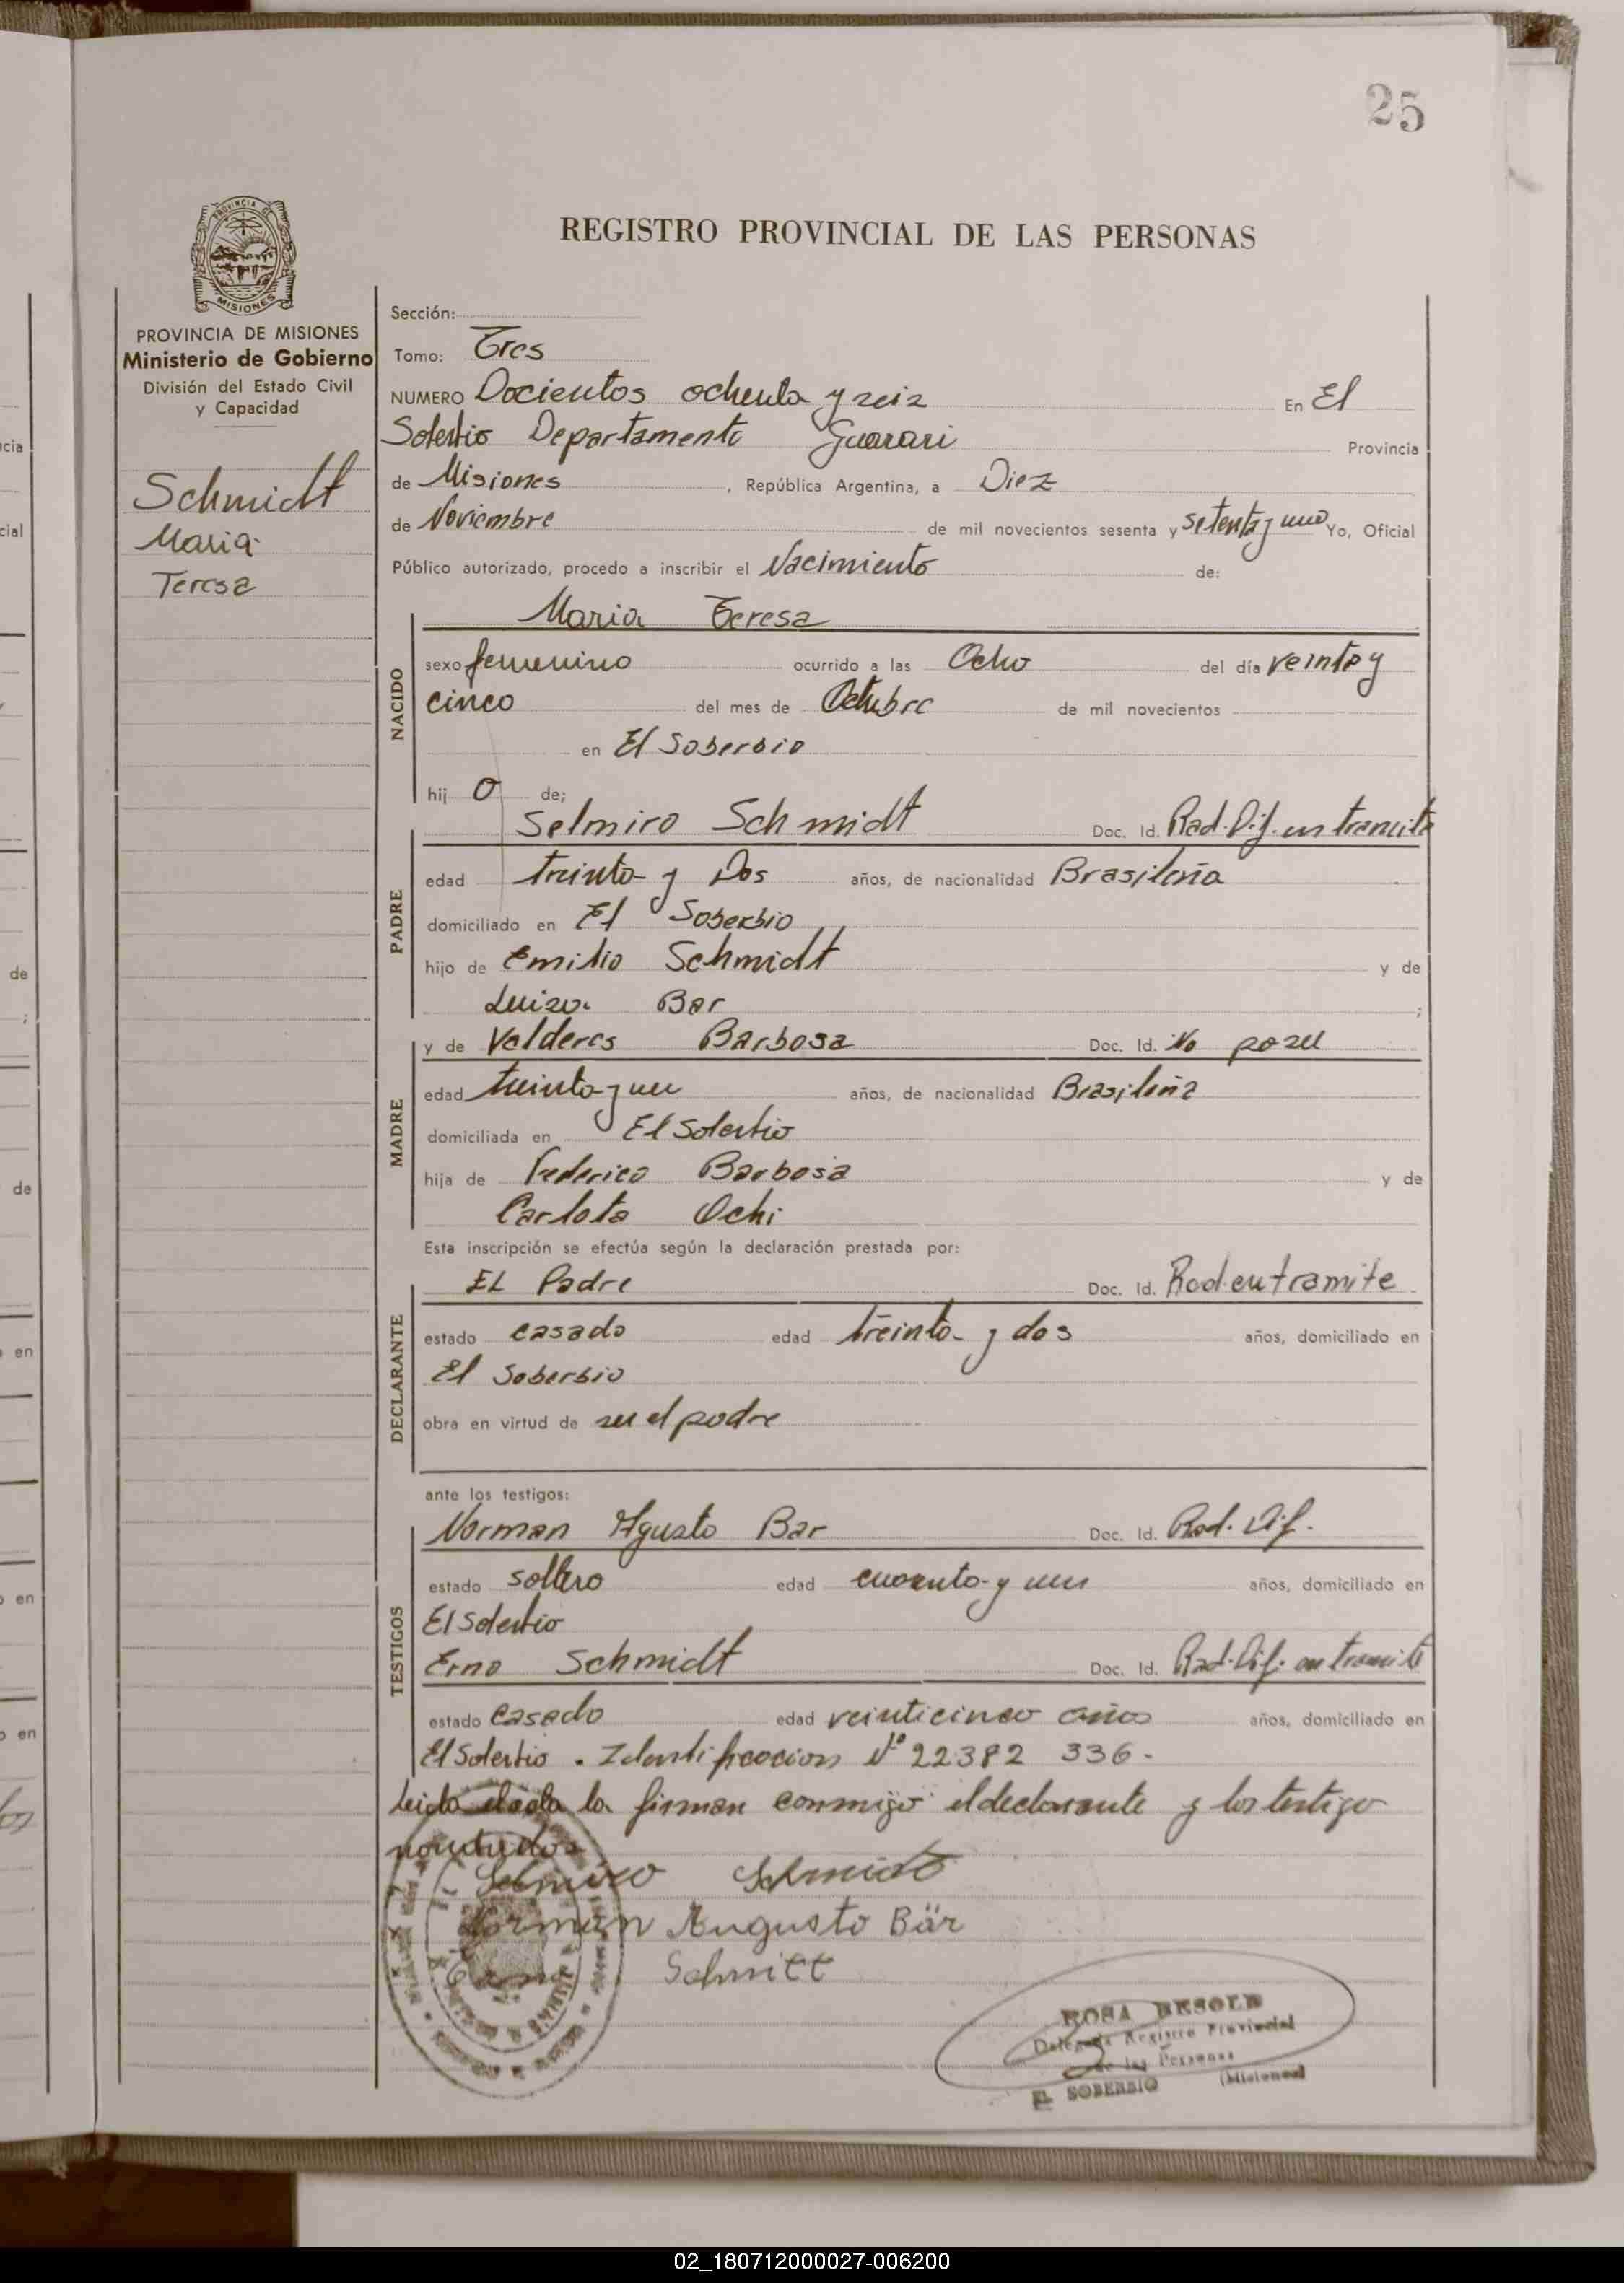 25
REGISTRO PROVINCIAL DE LAS PERSONAS
PROVINCIA DE
MISIONES
PROVINCIA DE MISIONES
Ministerio de Gobierno
División del Estado Civil
y Capacidad
Schmidt
Maria
Teresa
Sección:
Tomo: Tres
NUMERO Docientos ochenta y seis En El
Soberbio Departamento Guarari Provincia
de Misiones, República Argentina, a Diez
de Noviembre de mil novecientos sesenta y setenta y uno Yo, Oficial
Público autorizado, procedo a inscribir el Nacimiento de:
NACIDO
Maria Teresa
sexo femenino ocurrido a las Ocho del día veinte y
cinco del mes de Octubre de mil novecientos
en El Soberbio
hij o de;
PADRE
Selmiro Schmidt Doc. Id. Rad. Dif. en tramite
edad treinta y Dos años, de nacionalidad Brasileña
domiciliado en El Soberbio
hijo de Emilio Schmidt y de
Luiza Bar ;
MADRE
y de Valderes Barbosa Doc. Id. No poseu
edad treinta y un años, de nacionalidad Brasileña
domiciliada en El Soberbio
hija de Federico Barbosa y de
Carlota Ochi
Esta inscripción se efectúa según la declaración prestada por:
DECLARANTE
EL Padre Doc. Id. Rad. en tramite
estado casado edad treinta y dos años, domiciliado en
El Soberbio
obra en virtud de ser el padre
ante los testigos:
TESTIGOS
Norman Agusto Bar Doc. Id. Rad. Dif.
estado soltero edad cuarenta y un años, domiciliado en
El Soberbio
Erno Schmidt Doc. Id. Rad. Dif. en tramite
estado casado edad veinticinco años años, domiciliado en
El Soberbio . Identificacion Nº 22382 336 -
Leida el acta la firman conmigo el declarante y los testigo
nombrados
Selmiro Schmidt
Norman Augusto Bär
Erno Schmitt
ROSA BESOLD
Delegada Registro Provincial
de las Personas
EL SOBERBIO (Misiones)
cia
cial
de
;
de
en
en
en
02_180712000027-006200